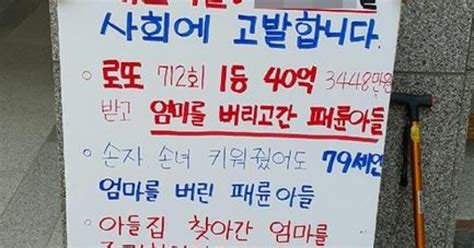 사회에 고발합니다.
○ 로또 712회 1등 40억 3448만원
받고 엄마를 버리고간 패륜아들
○ 손자 손녀 키워줬어도 79세인
엄마를 버린 패륜아들
○ 아들집 찾아간 엄마를